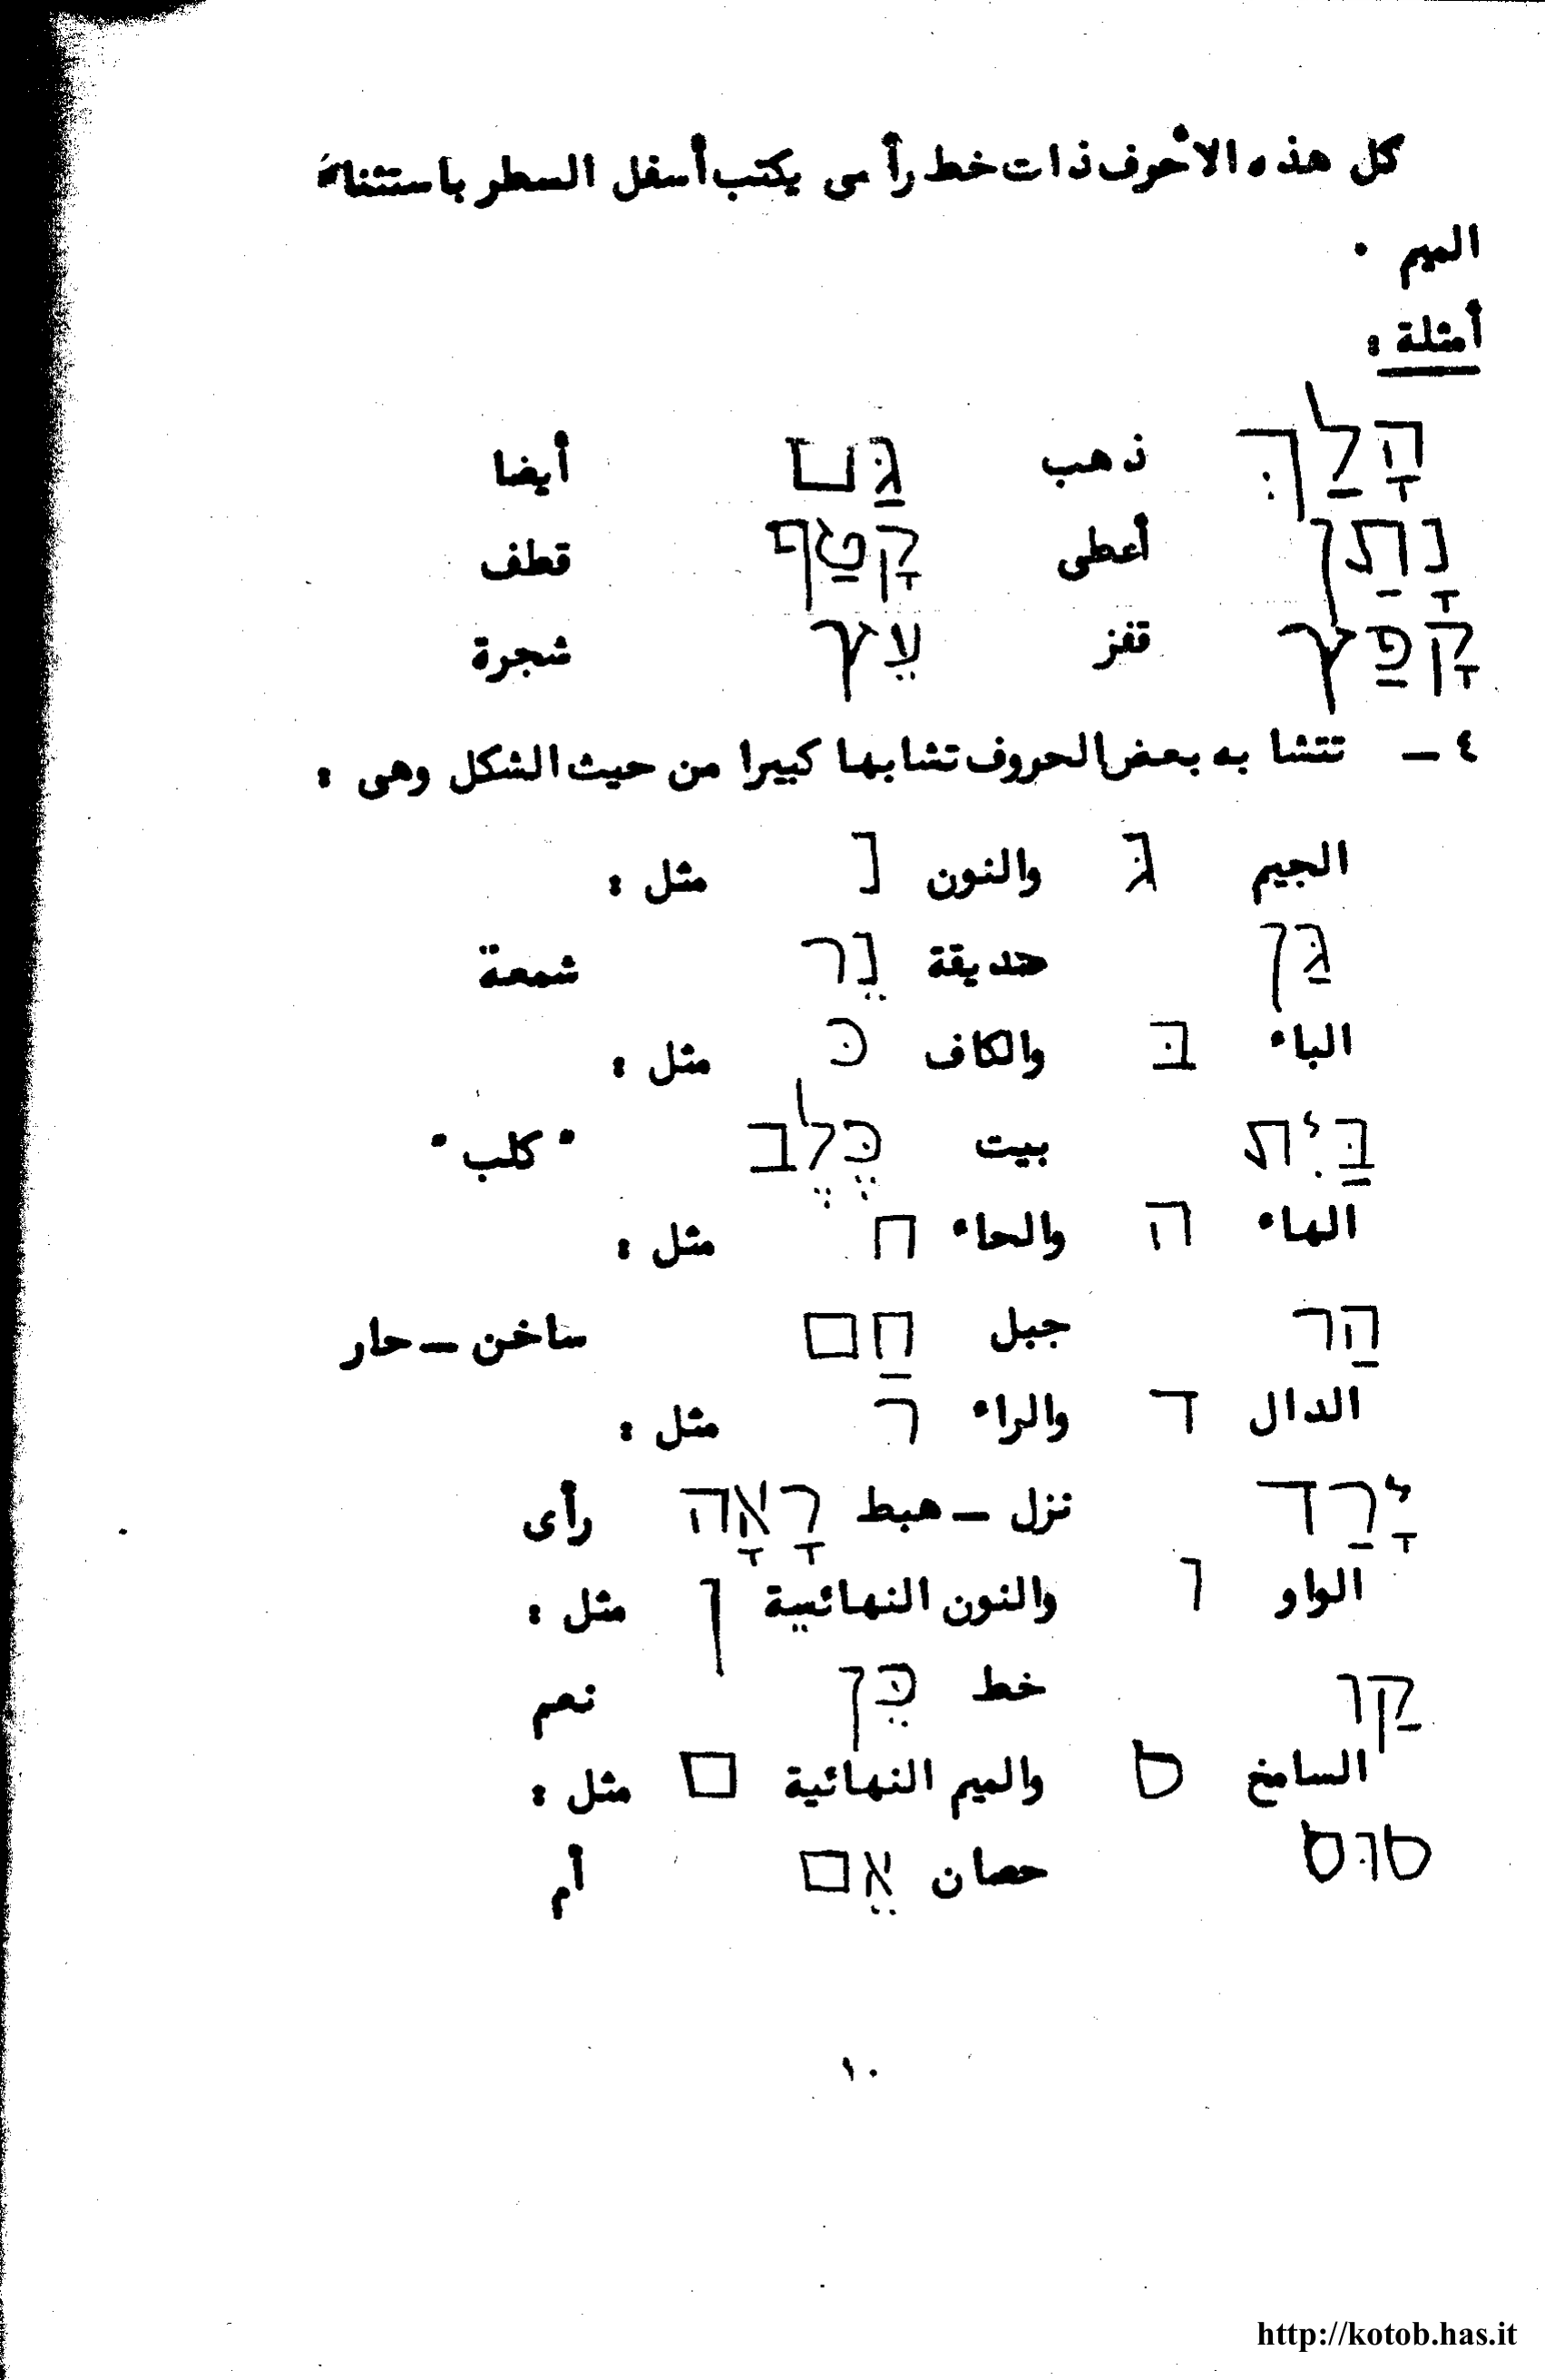 كل هذه الأحرف ذات خط رأسى يكتب أسفل السطر باستثناء
الميم .
أمثلة :
הָלַךְ ذهب גַּם أيضا
נָתַן أعطى קָטַף قطف
קָפַץ قفز עֵץ شجرة
٤ - تتشابه بعض الحروف تشابها كبيرا من حيث الشكل وهى :
الجيم גּ والنون נ مثل :
גַּן حديقة נֵר شمعة
الباء בּ والكاف כּ مثل :
בַּיִת بيت כֶּלֶב "كلب"
الهاء ה والحاء ח مثل :
הַר جبل חַם ساخن - حار
الدال ד والراء ר مثل :
יָרַד نزل - هبط רָאָה رأى
الواو ו والنون النهائية ן مثل :
קַו خط כֵּן نعم
السامخ ס والميم النهائية ם مثل :
סוּס حصان אֵם أم
١٠
http://kotob.has.it